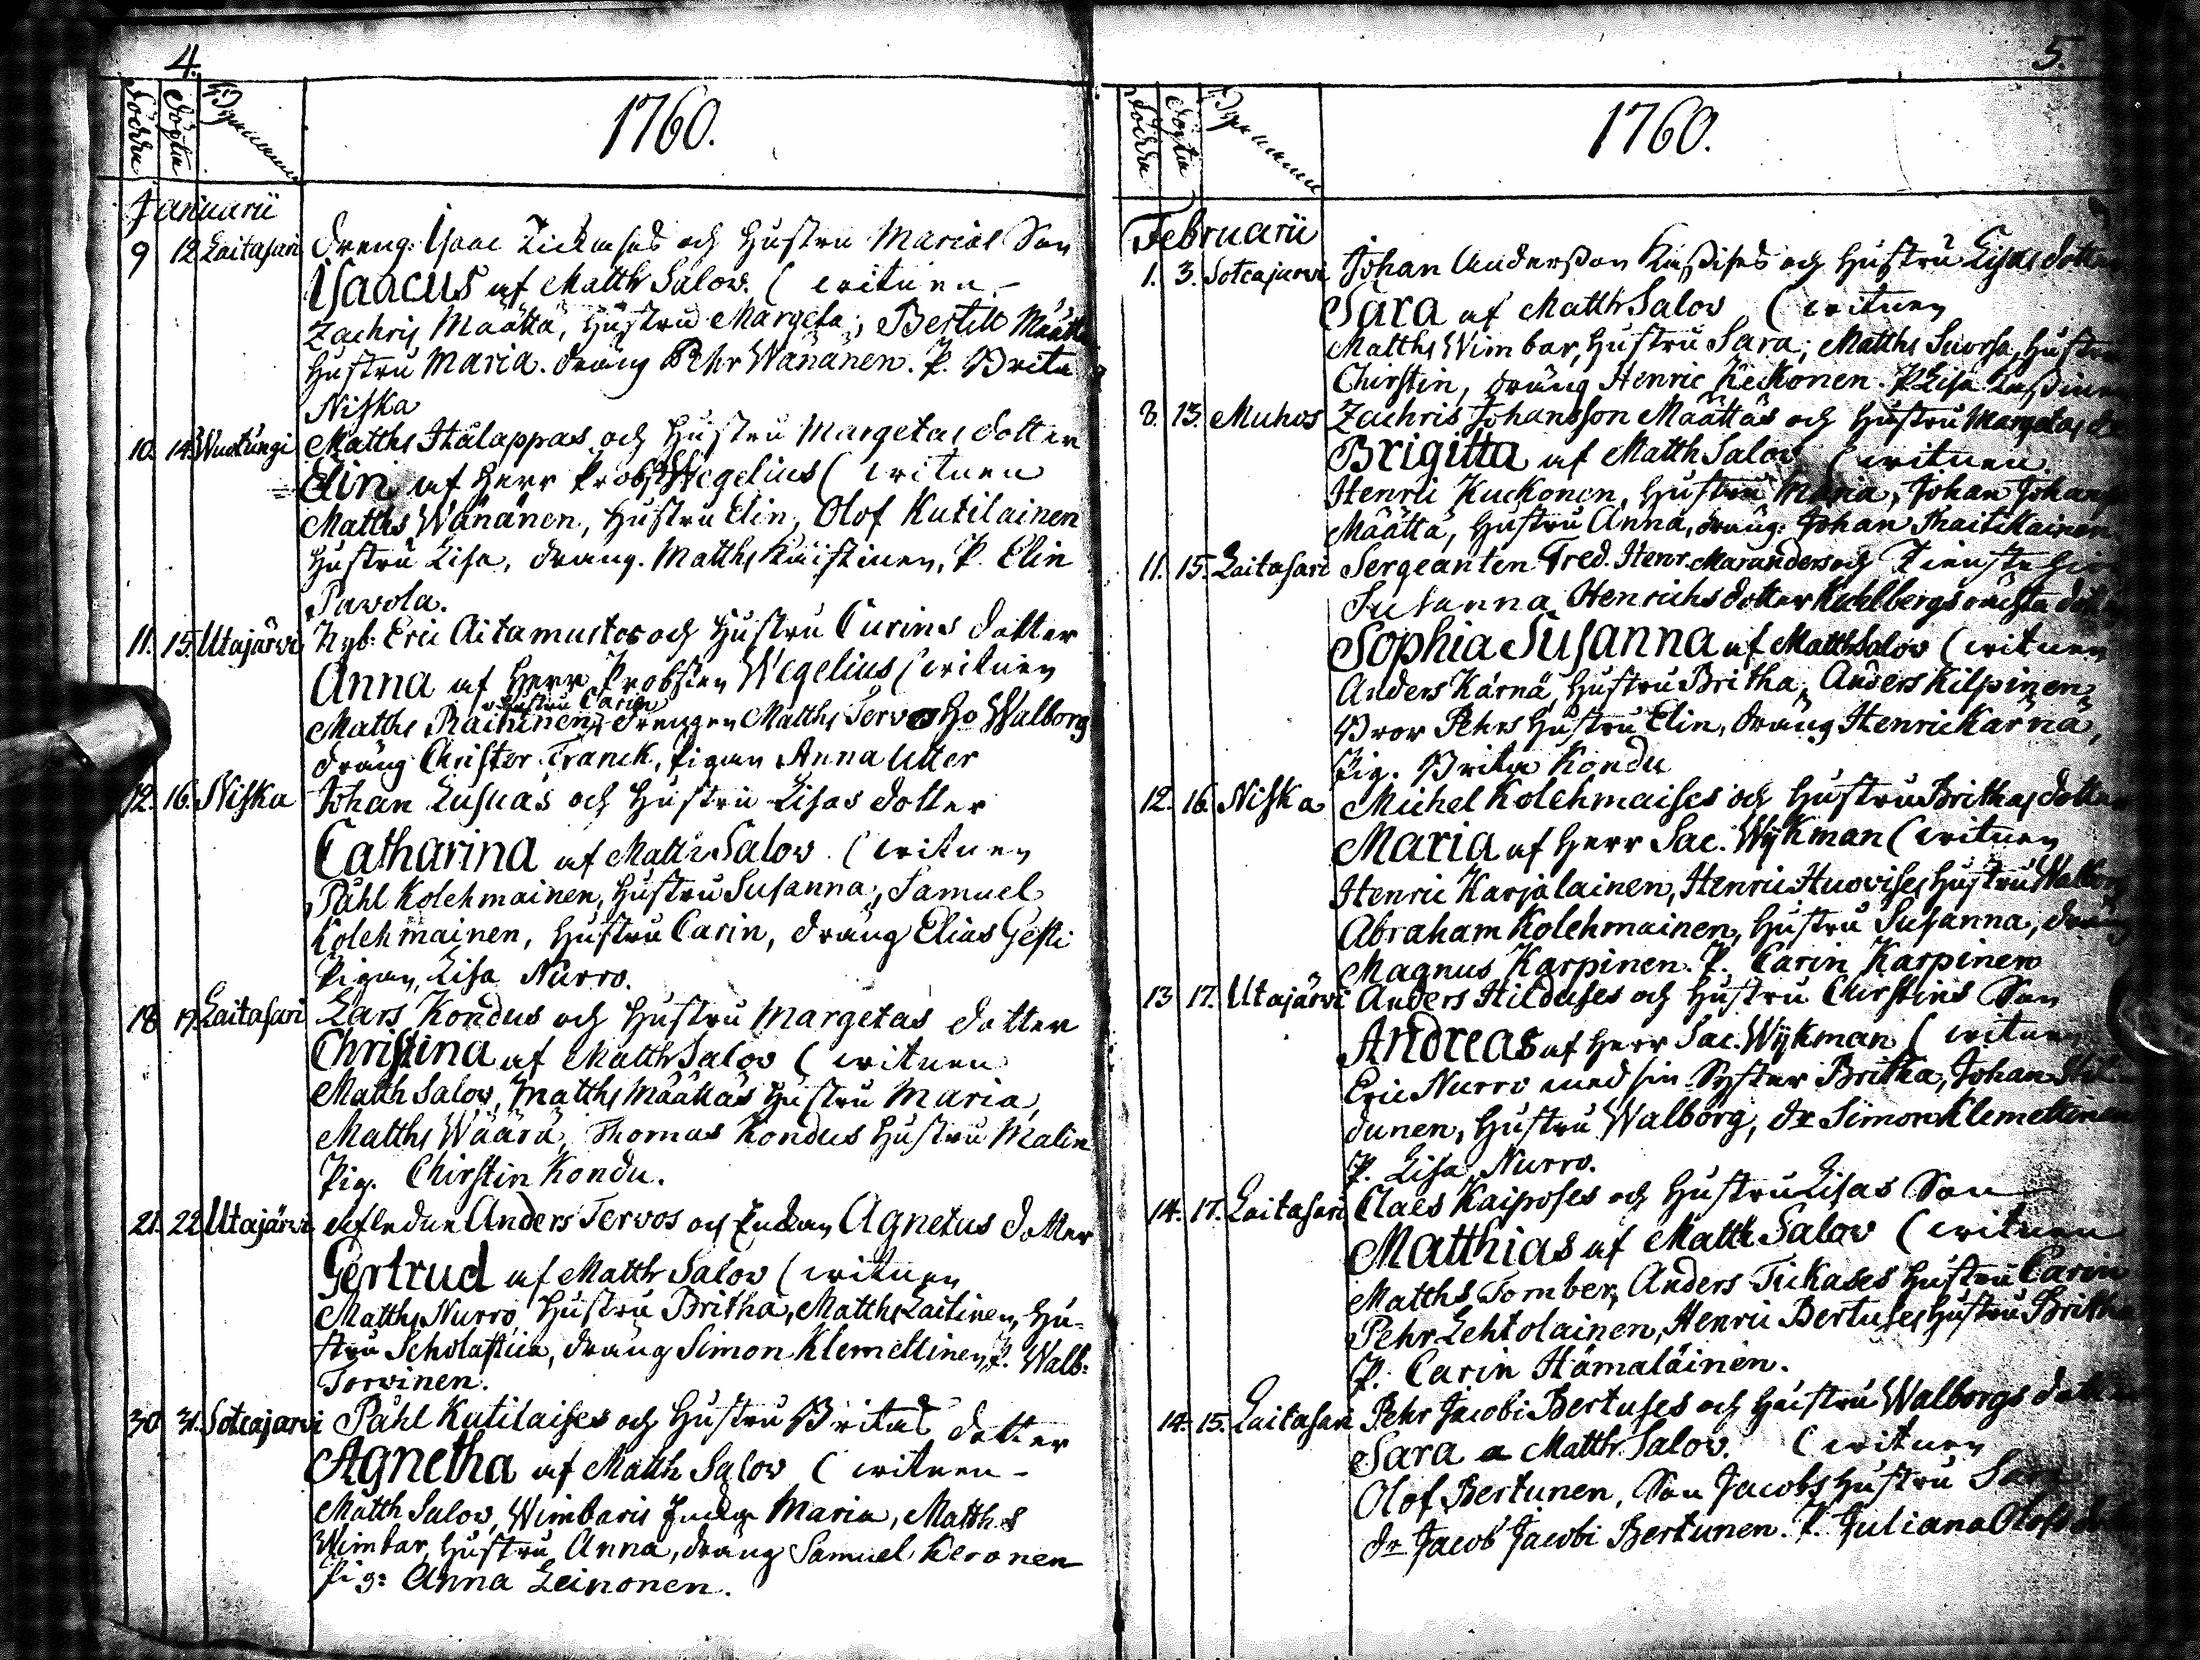 4.
Födde
Döpte
Bynamn
1760.
Januarii
9 12 Laitasari Dreng. Isaac Tickases och Hustru Marias Son
Isaacus af Matth Salov. ( witnen
Zachris Määttä, Hustru Margeta, Bertill Määtt
Hustru Maria. dräng Pehr Wänänen. P. Brita
Niska
10. 14. Wuotungi Matths Italappas och Hustru Margetas dotter
Elin af Herr Probst Wegelius ( witnen
Matths Wänänen, Hustru Elin, Olof Kutilainen
Hustru Lisa, dräng. Matths Kuistinen, P. Elin
Pavola.
11. 15. Utajärvi Nyb: Eric Aitamurtos och Hustru Carins dotter
Anna af Herr Probsten Wegelius ( witnen
Hustru Carin
Matths Raihinen, Drengen Matths Tervo Ho Walborg
dräng Christer Franck, pigan Anna Utter
12. 16. Niska Johan Luskas och Hustru Lisas dotter
Catharina af Matth Salov. ( witnen
Påhl Kolehmainen, Hustru Susanna, Samuel
Kolehmainen, Hustru Carin, dräng Elias Gesti
Pigan Lisa Nurro.
18 19. Laitasari Lars Kondus och Hustru Margetas dotter
Christina af Matth Salov ( witnen
Matth Salov, Matths Määttäs Hustru Maria,
Matths Wäärä, Thomas Kondus Hustru Malin
Pig. Chirstin Kondu.
21. 22. Utajärvi afledne Anders Tervos och Enkan Agnetas dotter
Gertrud af Matth Salov ( witnen
Matths Nurro, Hustru Britha, Matths Laitinen, Hu-
stru Scholastica, dräng Simon Klemettinen, P. Walb:
Torvinen.
30 31. Sotcajarvi Påhl Kutilaises och Hustru Britas dotter
Agnetha af Matth Salov ( witnen
Matth Salov, Wimbaris Enka Maria, Matths
Wimbar, Hustru Anna, dräng Samuel Keronen
Pig: Anna Leinonen.
5.
Födde
Döpte
Bynamn
1760.
Februarii
1. 3. Sotcajarvi Johan Andersson Kassises och Hustru Lisas dotter
Sara af Matth Salov ( witnen
Matths Wimbar, Hustru Sara, Matths Suorsa, Hustru
Chirstin, dräng Henric Keckonen. P. Lisa
8. 13. Muhos Zachris Johansson Määttäs och Hustru Margetas
Brigitta af Matth Salov ( witnen.
Henric Kuckonen, Hustru Maria, Johan Johans
Määttä, Hustru Anna, dräng: Johan Maitikainen
11. 15. Laitasari Sergeanten Fred. Henr. Maranders och Tienste
Susanna Henrichs dotter Kuhlbergs oächta dotter
Sophia Susanna af Matth Salov ( witnen
Anders Kärnä, Hustru Britha, Anders Kilpinen,
Bror Pehrs Hustru Elin, dräng Henric Kärnä,
Pig. Brita Kondu
12. 16. Niska Michel Kolehmaises och Hustru Brithas dotter
Maria af Herr Sac. Wÿkman ( witnen
Henric Karjalainen, Henric Huovises Hustru Walborg
Abraham Kolehmainen, Hustru Susanna, dräng
Magnus Karpinen. P. Carin Karpinen
13 17. Utajärvi Anders Hilduses och Hustru Chirstins Son
Andreas af Herr Sac. Wÿkman ( witnen
Eric Nurro med sin Syster Britha, Johan Hil-
dunen, Hustru Walborg, dr Simon Klemettinen
P. Lisa Nurro.
14. 17. Laitasari Claes Kaiposes och Hustru Lisas Son
Matthias af Matth Salov ( witnen
Matths Tomber, Anders Tikases Hustru Carin
Pehr Lehtolainen, Henric Bertuses Hustru Britha
P. Carin Hämäläinen.
14. 15. Laitasari Pehr Jacobi Bertuses och Hustru Walborgs dotter
Sara a Matth Salov. ( witnen
Olof Bertunen, Son Jacobs Hustru Sara
dr Jacob Jacobi Bertunen. P. Juliana Olofs